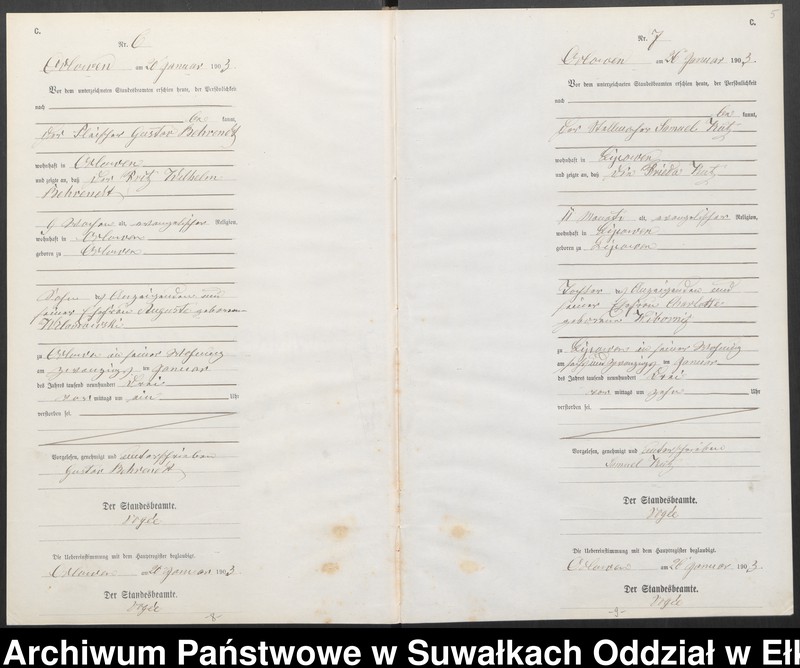 C.
Nr. 6
Orlowen am 20 Januar 1903.
Vor dem unterzeichneten Standesbeamten erschien heute, der Persönlichkeit
nach
be kannt,
der Fleischer Gustav Behrendt
wohnhaft in Orlowen
und zeigte an, daß der Fritz Wilhelm
Behrendt
9 Wochen alt, evangelischer Religion,
wohnhaft in Orlowen
geboren zu Orlowen
Sohn des Anzeigenden und
seiner Ehefrau Auguste geborenen
zu Orlowen in seiner Wohnung
am zwanzigsten Januar
des Jahres tausend neunhundert drei
vor mittags um ein Uhr
verstorben sei.
Vorgelesen, genehmigt und unterschrieben
Gustav Behrendt
Der Standesbeamte.
Die Uebereinstimmung mit dem Hauptregister beglaubigt.
Orlowen am 20 Januar 1903.
Der Standesbeamte.
-8-
5
C.
Nr. 7
Orlowen am 26 Januar 1903.
Vor dem unterzeichneten Standesbeamten erschien heute, der Persönlichkeit
nach
be kannt,
der Stellmacher Samuel Katz
wohnhaft in Lipowen
und zeigte an, daß die Frieda Katz
11 Monate alt, evangelischer Religion,
wohnhaft in Lipowen
geboren zu Lipowen
Tochter des Anzeigenden und
seiner Ehefrau Charlotte
geborene
zu Lipowen in seiner Wohnung
am sechsundzwanzigsten Januar
des Jahres tausend neunhundert drei
vor mittags um zehn Uhr
verstorben sei.
Vorgelesen, genehmigt und unterschrieben
Samuel Katz
Der Standesbeamte.
Die Uebereinstimmung mit dem Hauptregister beglaubigt.
Orlowen am 26 Januar 1903.
Der Standesbeamte.
-9-
Archiwum Państwowe w Suwałkach Oddział w Eł